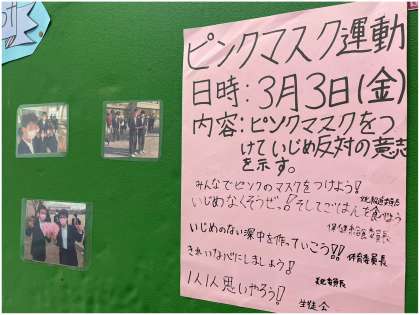 ピンクマスク運動
日時:3月3日(金)
内容:ピンクマスクをつ
けていじめ反対の意志
を示す。
みんなでピンクのマスクをつけよう!
いじめなくそうぜっ!そしてごはんを食べよう
保健給食委員長
いじめのない深中を作っていこう!! 体育委員長
きれいな心にしましょう! 美化委員長
1人1人思いやろう! 生徒会